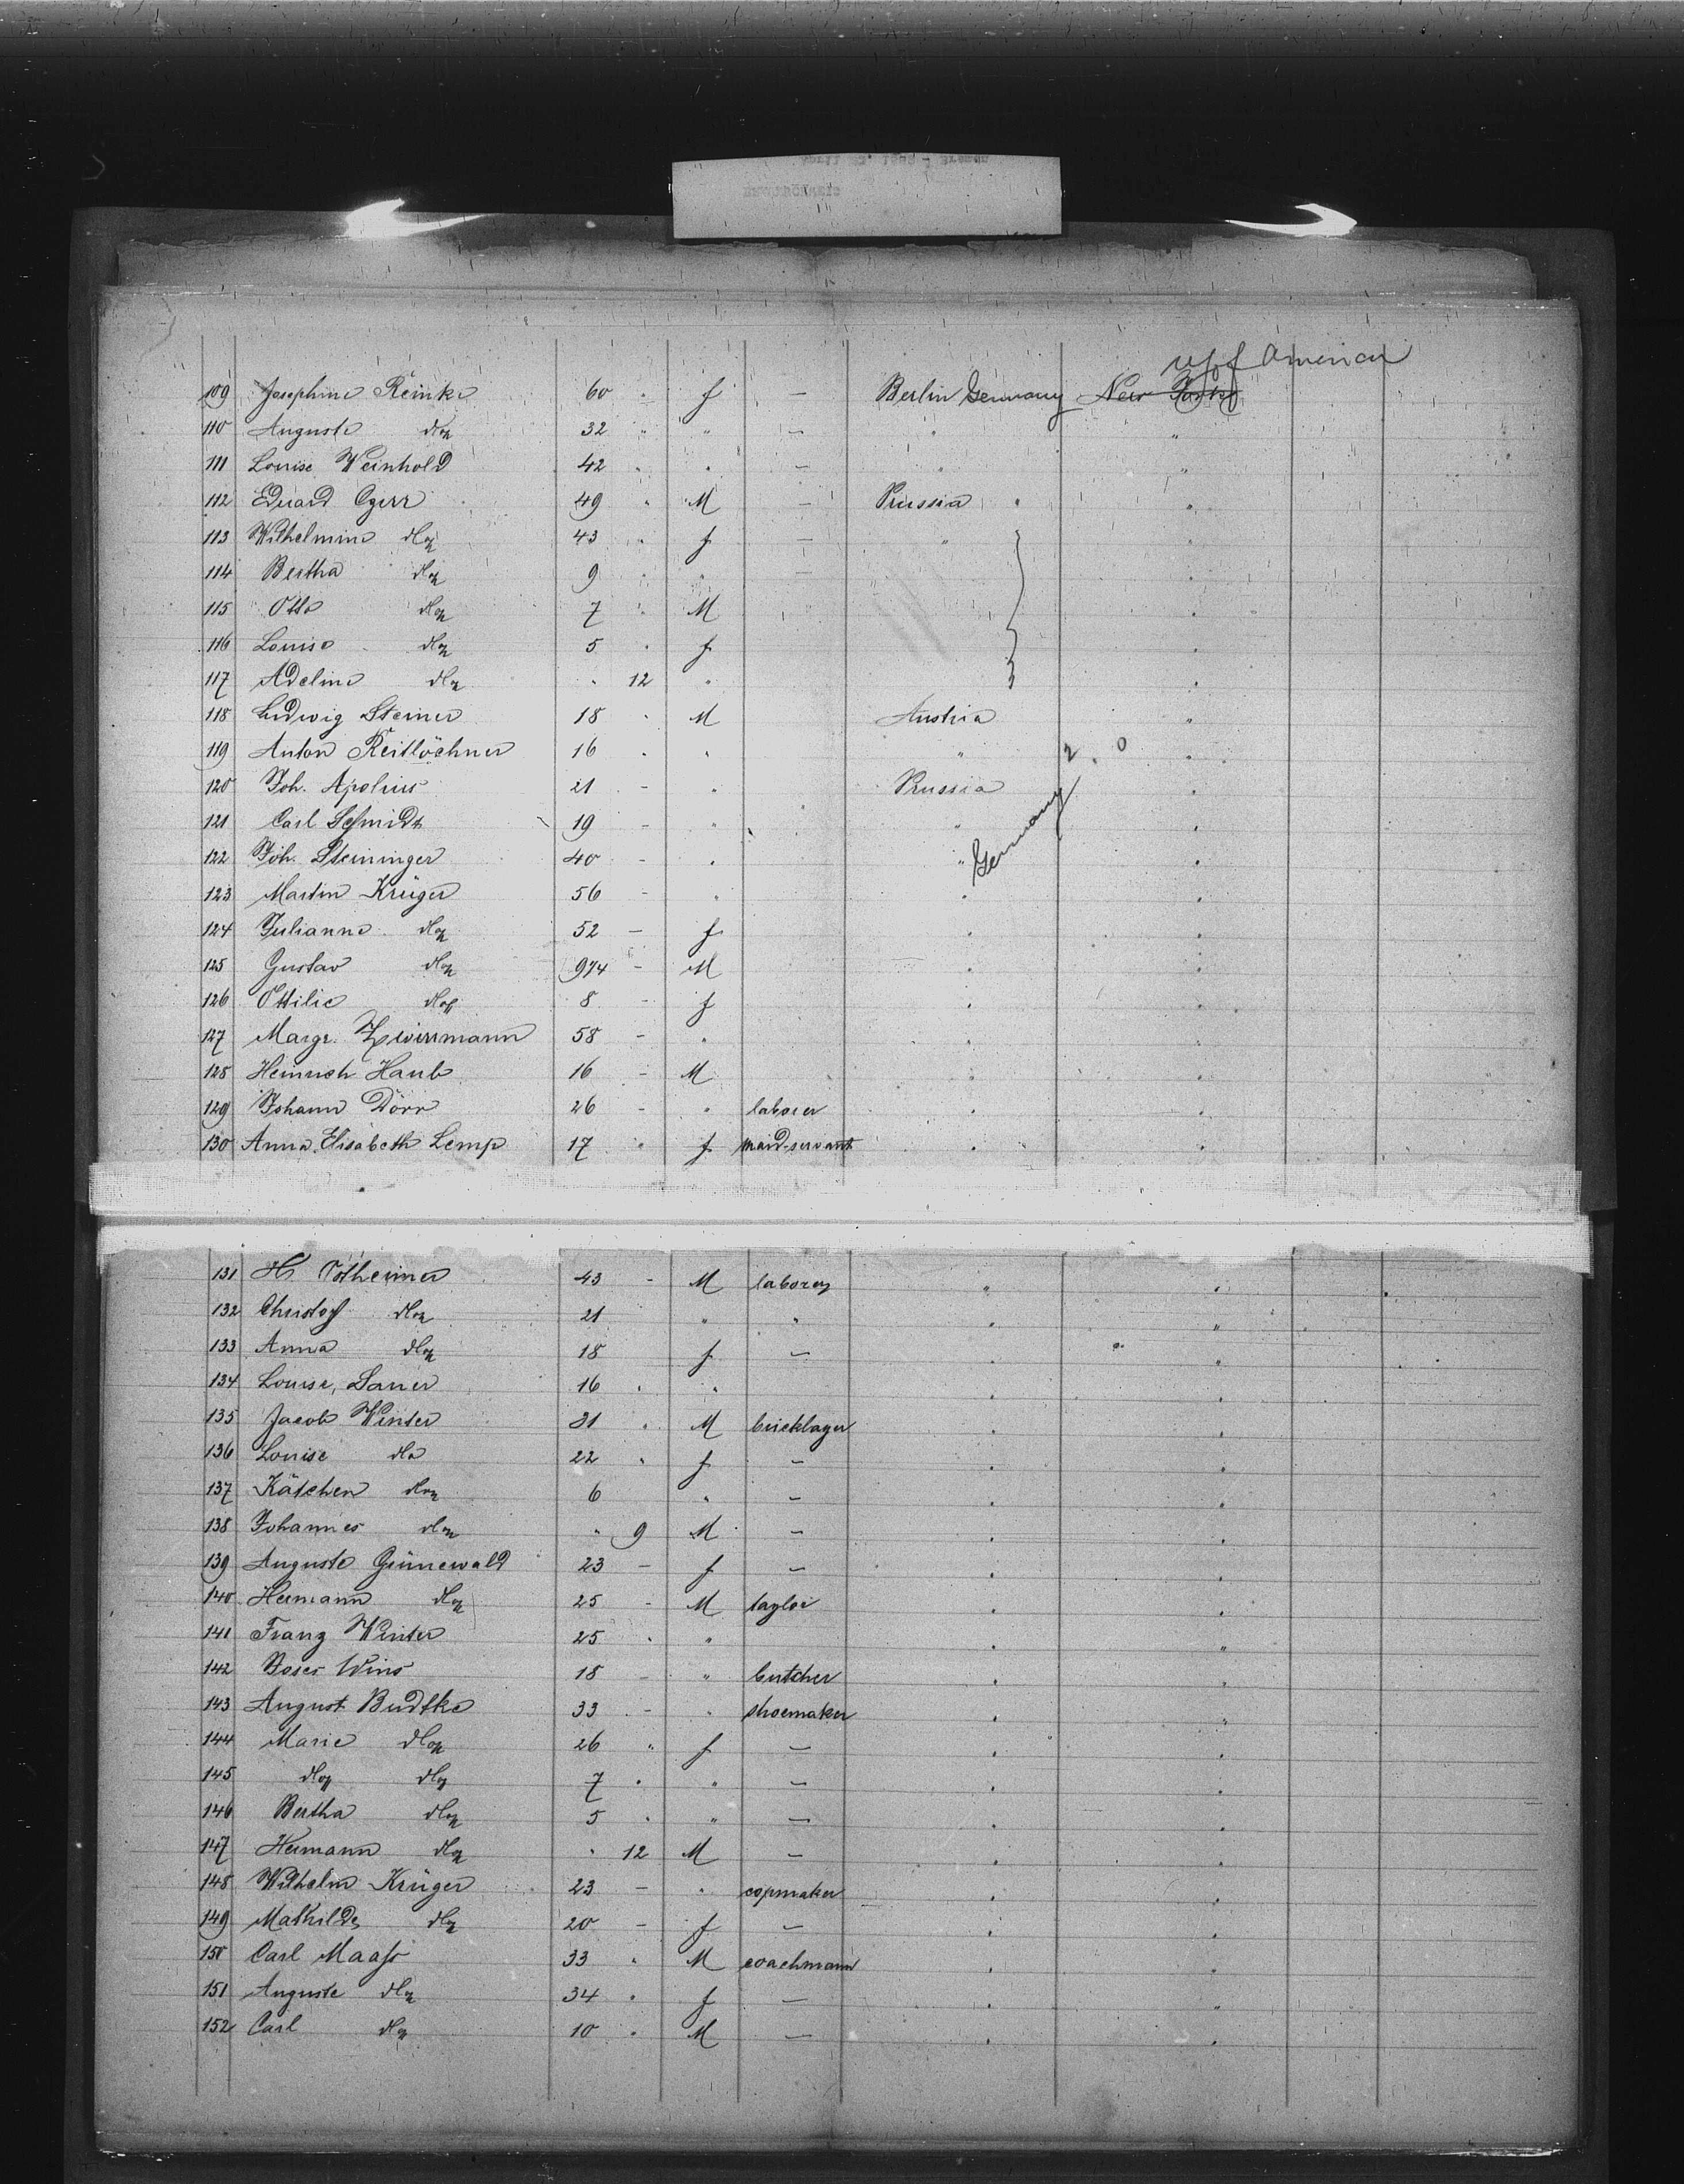 U S of America
109 Josephine Reinke 60 " f — Berlin Germany New York
110 Auguste do 32 " " — " "
111 Louise Weinhold 42 " " — " "
112 Eduard 49 " M — Prussia " "
113 Wilhelmine do 43 " f — " "
114 Bertha do 9 " " — "
115 Otto do 7 " M "
116 Louise do 5 " f "
117 Adeline do " 12 " "
118 Ludwig Steiner 18 " M Austria "
119 Anton Reitlöchner 16 " " " 2. 0 "
120 Joh. Apolius 21 - " Prussia "
121 Carl Schmidt 19 - " " Germany "
122 Joh. Steininger 40 - " " "
123 Martin Krüger 56 - " " "
124 Julianne do 52 - f " "
125 Gustav do 9 - M " "
126 Ottilie do 8 - f " "
127 Margr. Zwirrmann 58 - " " "
128 Heinrich Haub 16 - M " "
129 Johann Dörr 26 - " laborer " "
130 Anna Elisabeth Lemp 17 " f maid-servant " "
131 H. Ostheimer 43 - M laborer " "
132 Christof do 21 " " " "
133 Anna do 18 f — " "
134 Louise Sauer 16 " " " "
135 Jacob Winter 31 " M bricklayer " "
136 Louise do 22 " f - " "
137 Kätchen do 6 " - " "
138 Johannes do " 9 M - " "
139 Auguste Grünewald 23 - f - " "
140 Hermann do 25 - M taylor " "
141 Franz Winter 25 " " " "
142 Wins 18 - " butcher " "
143 August Budtke 33 - " shoemaker " "
144 Marie do 26 " f — " "
145 do do 7 " " — " "
146 Bertha do 5 " " — " "
147 Hermann do " 12 M — " "
148 Wilhelm Krüger 23 - " copmaker " "
149 Mathilde do 20 - f — " "
150 Carl Maaß 33 " M coachmann " "
151 Auguste do 34 " f — " "
152 Carl do 10 " M — " "